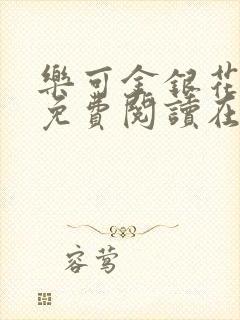 樂可金銀花
免費閱讀在
容莺